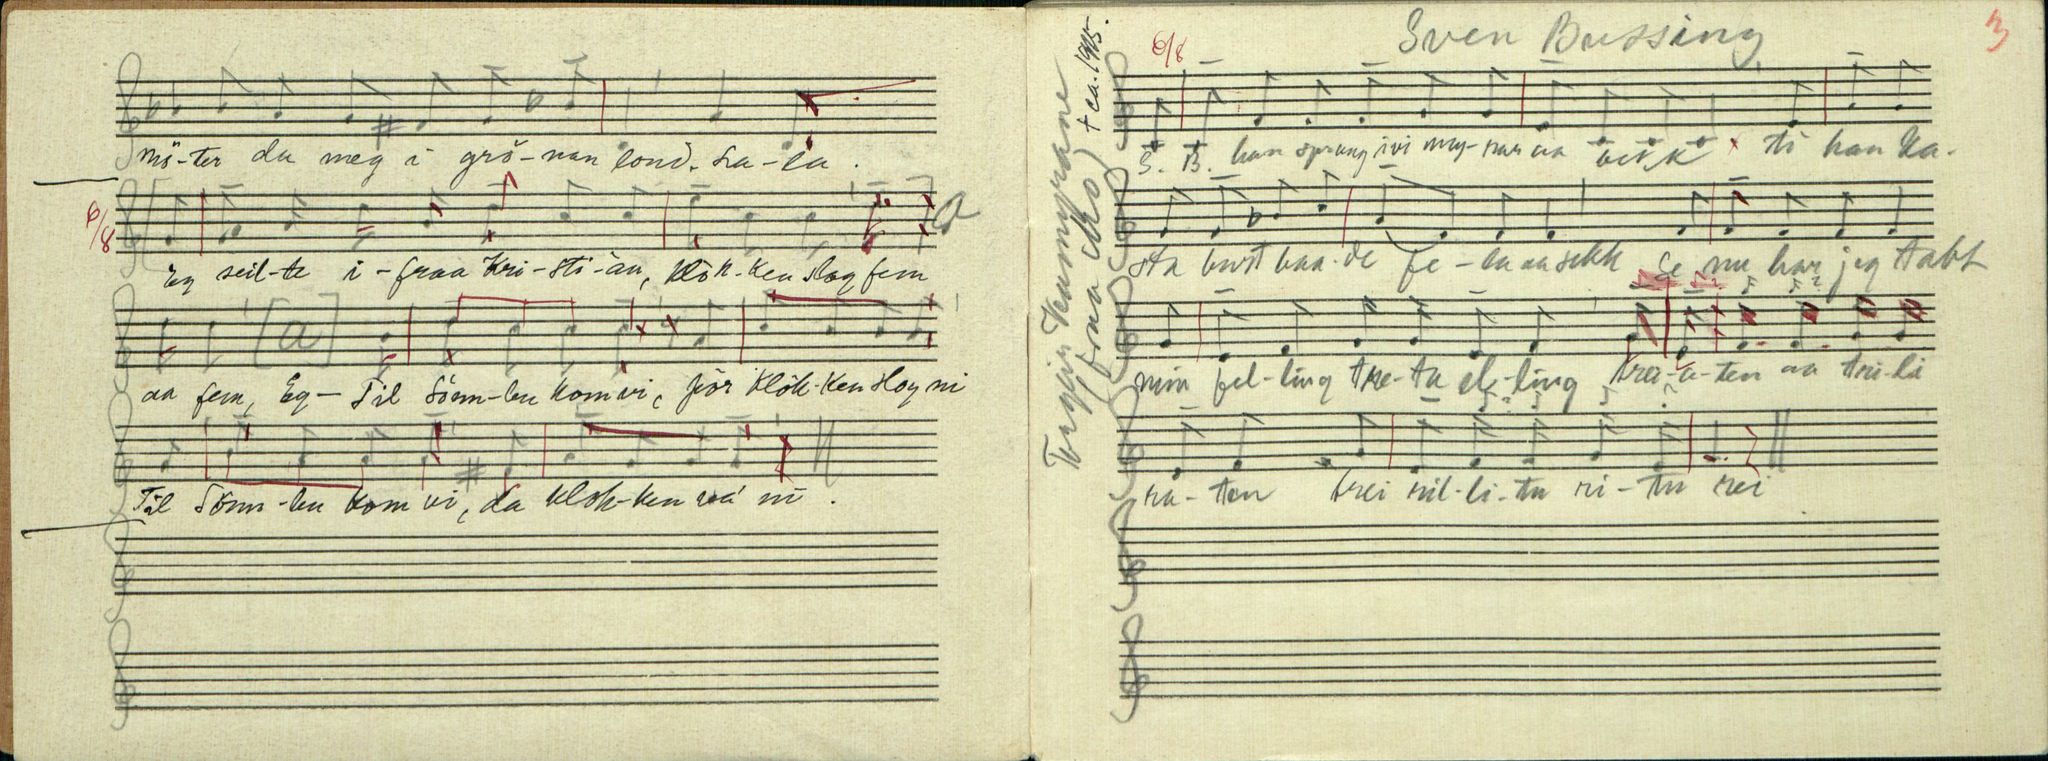 mö-ter du meg i grö-nan lond. La-la.
6/8
Eg seil-te i-fraa Kri-sti-an, klok-ken slog fem
[a]
aa fem, Eg — Til Sönn-leu kom vi, för klok-ken slog ni
Til Sönn-leu kom vi, da klok-ken va' ni.
Sven Bussing
3
† ca. 1905.
6/8
S. B. han sprang ivi myrar aa ti han ka-
sta burt baa-de fe-la aa sekk Se nu har jeg tabt
min fel-ling tre-ta el-ling trei-a-ten aa tri-li
ra-ten trei ril-li-tu ri-tu rei